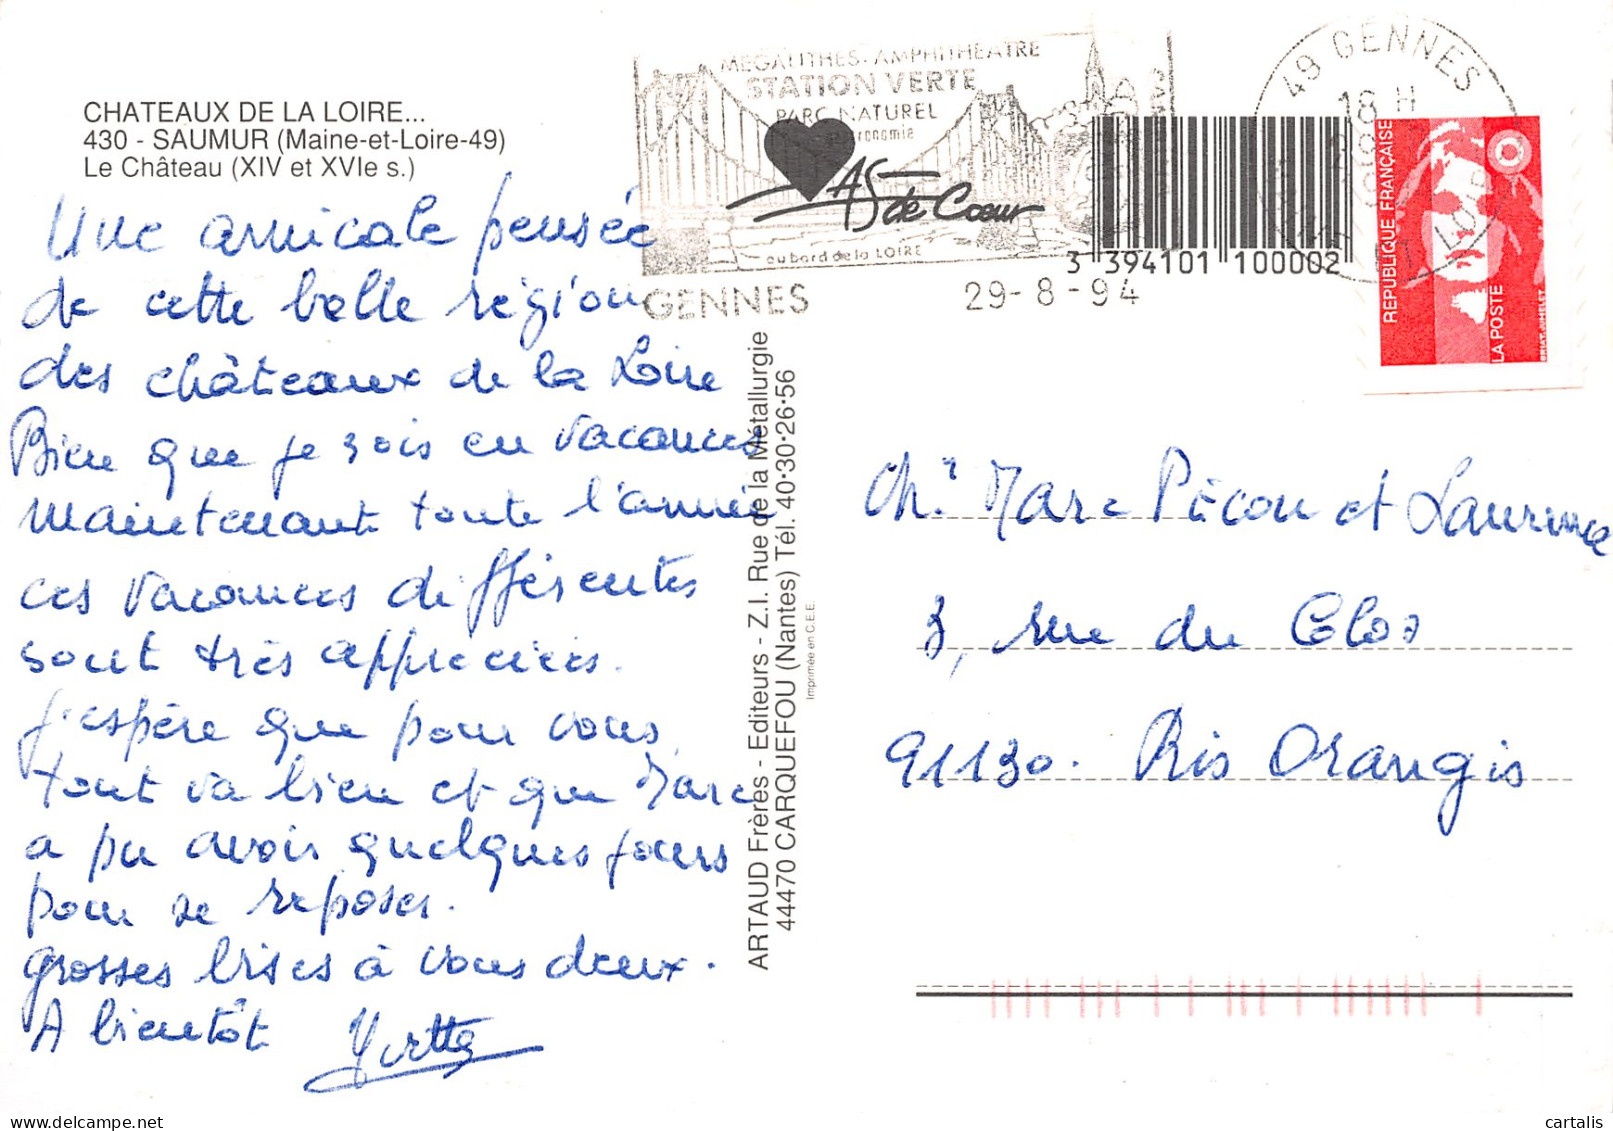 CHATEAUX DE LA LOIRE...
430 - SAUMUR (Maine-et-Loire-49)
Le Château (XIV et XVIe s.)
Une amicale pensée
de cette belle région
des châteaux de la Loire
Bien que je sois en vacances
maintenant toute l'année
ces vacances différentes
sont très appréciées.
j'espère que pour vous
tout va bien et que Marc
a pu avoir quelques jours
pour se reposer.
grosses bises à vous deux.
A bientôt Yvette
ARTAUD Frères - Editeurs - Z.I. Rue de la Métallurgie
44470 CARQUEFOU (Nantes) Tél. 40·30·26·56
Imprimée en C.E.E.
MEGALITHES-AMPHITHEATRE
STATION VERTE
PARC NATUREL
AS de Coeur
au bord de la LOIRE
GENNES
29-8-94
49 GENNES
18 H
3 394101 100002
REPUBLIQUE FRANÇAISE
LA POSTE
Marc Picou et Laurence
3, rue du Clos
91130. Ris Orangis
cartalis
delcampe.net